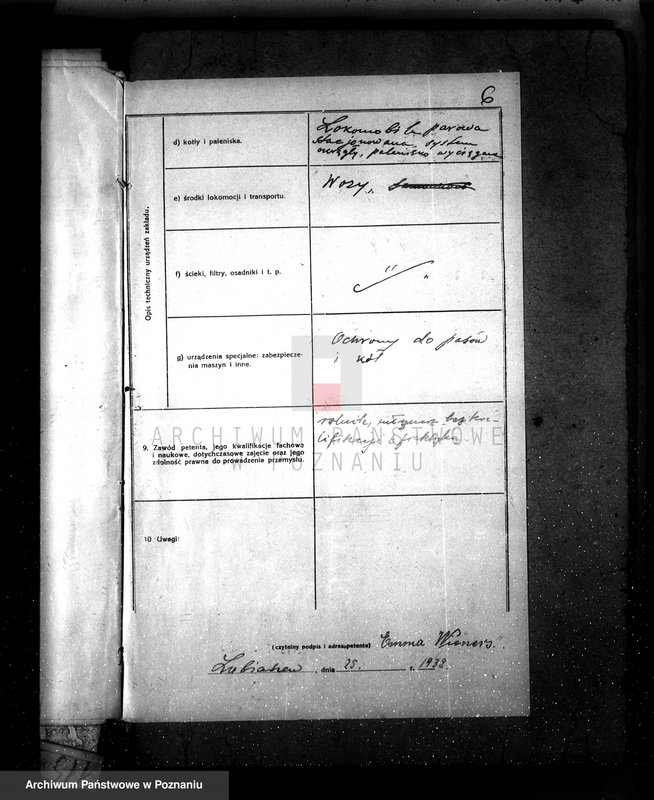 6
Opis techniczny urządzeń zakładu.
d) kotły i paleniska.
Lokomobila parowa
stacjonowana, system
okrągły, palenisko wyciągane
e) środki lokomocji i transportu.
Wozy,
f) ścieki, filtry, osadniki i t. p.
g) urządzenia specjalne: zabezpiecze-
nia maszyn i inne.
Ochrony do pasów
i kół
9. Zawód petenta, jego kwalifikacje fachowe
i naukowe, dotychczasowe zajęcie oraz jego
zdolność prawna do prowadzenia przemysłu.
rolnik, młynarz bez kwa-
lifikacji
10 Uwagi:
(czytelny podpis i adres petenta) Emma
, dnia 25. r. 1932
ARCHIWUM PAŃSTWOWE
W POZNANIU
Archiwum Państwowe w Poznaniu